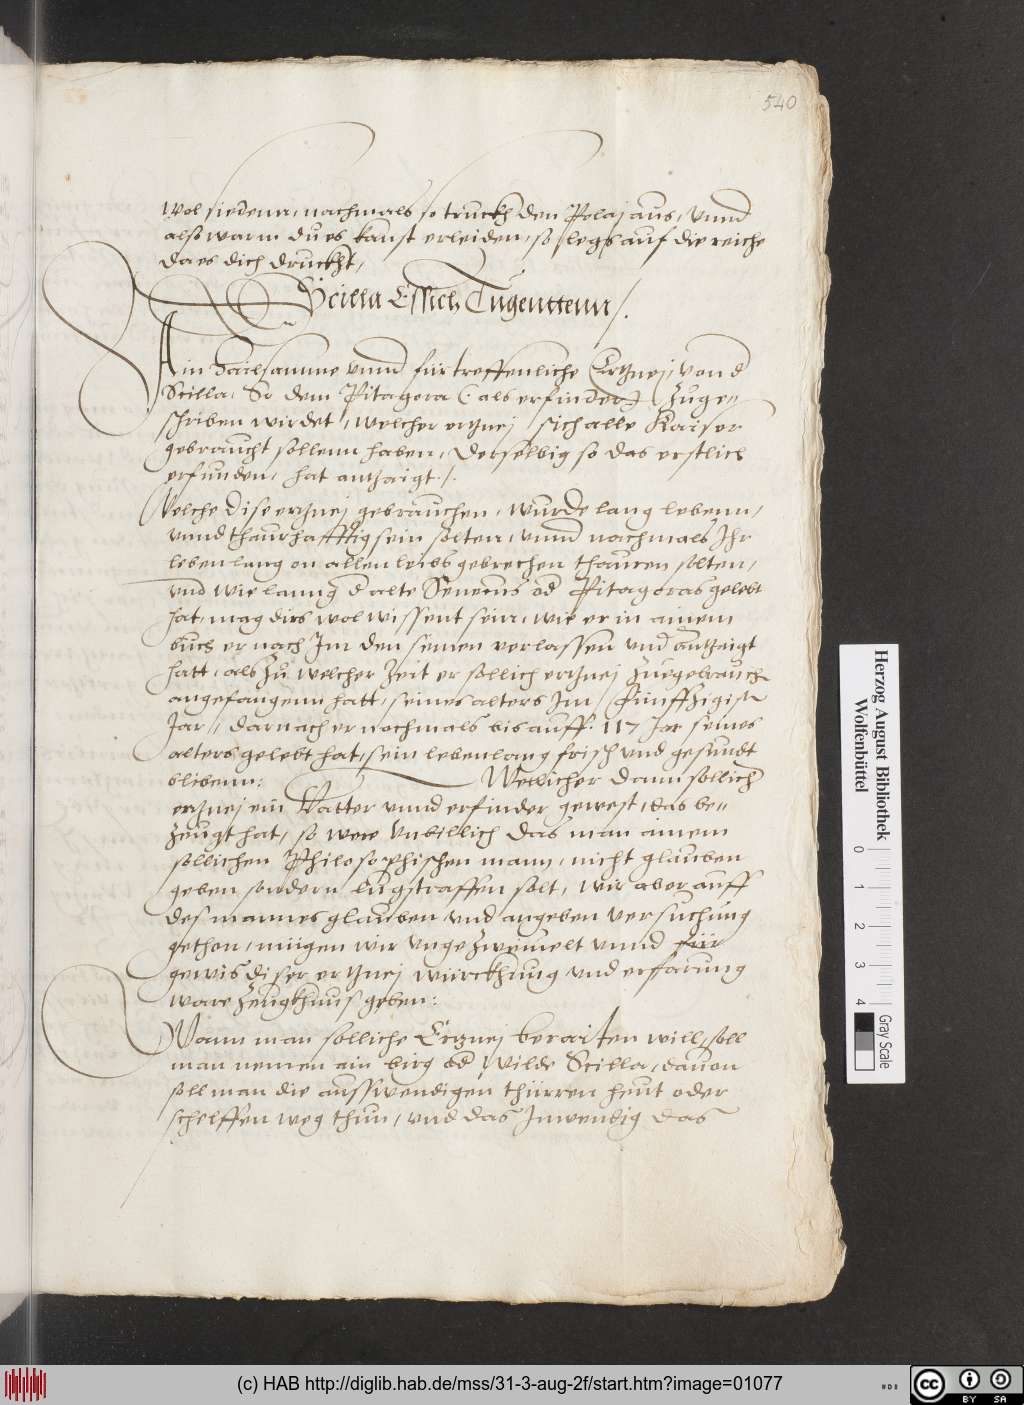 540
wol siedenn, nachmals so truckh den Polaj aus, vnnd
also warm du es kanst erleiden, so legs auf die reiche
da es dich druckht,
Scilla Essich Tugenttenn /.
Ain hailsamme vnnd fürtreffenliche Ertznej, von d
Scilla, So dem Pitagora (: als erfinder:) zuge„
schriben wirdet, welcher ertznej sich alle Kaiser
gebraucht sollenn haben, Derselbig so das erstlich
erfunden, hat antzaigt /.
Welche dise ertznej gebrauchen, wurde lang lebenn,
vnnd thaurhafftig sein solten, vnnd nachmals Ihr
leben lang on allen leibs gebrechen thauren solten,
vnd wie lanng d alte Senecus od Pitagoras gelebt
hat, mag dirs wol wissent sein, wie er in ainem
buch er nach Im den seinen verlassen vnd antzaigt
hatt, als zu welcher Zeit er sollich ertznej zuegebrauch
angefangenn hatt, seines alters Im Fünffzigist
Jar, darnach er nochmals bis auff 117 Jar seines
alters gelebt hat, sein lebenlang frisch vnd gesundt
blibenn: Wellicher dann sollich
ertznej ein Vatter vnnd erfinder gewest, das be„
zeugt hat, so were vnbillich das man ainem
sollichen Philosophischen mann, nicht glauben
geben sondern lugstraffen solt, wir aber auff
des mannes glauben vnd angeben versuchung
gethon, mügen wir vngezweiuelt vnnd für
gewis diser ertznej würckhung vnd erfarung
ware Zeugkhnus geben:
Wann man solliche Ertznej beraiten will, soll
man nemen ain birg od wilde Scilla, dauon
soll man die ausswendigen thürren heut oder
schelffen weg thun, vnd das Inwendig das
Herzog August Bibliothek
Wolfenbüttel
0 1 2 3 4
Gray Scale
(c) HAB http://diglib.hab.de/mss/31-3-aug-2f/start.htm?image=01077
cc BY SA